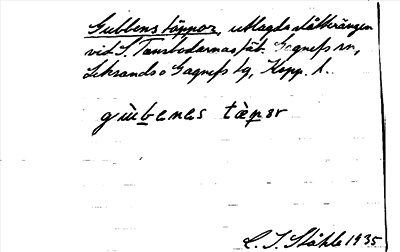 Gubbens täppor, utlagda slåtterängen
vid S. Tansbodarnas fäb. Gagnefs sn,
Leksands o Gagnefs tg, Kopp. l.
gùbenes tàpor
C. I. Ståhle 1935